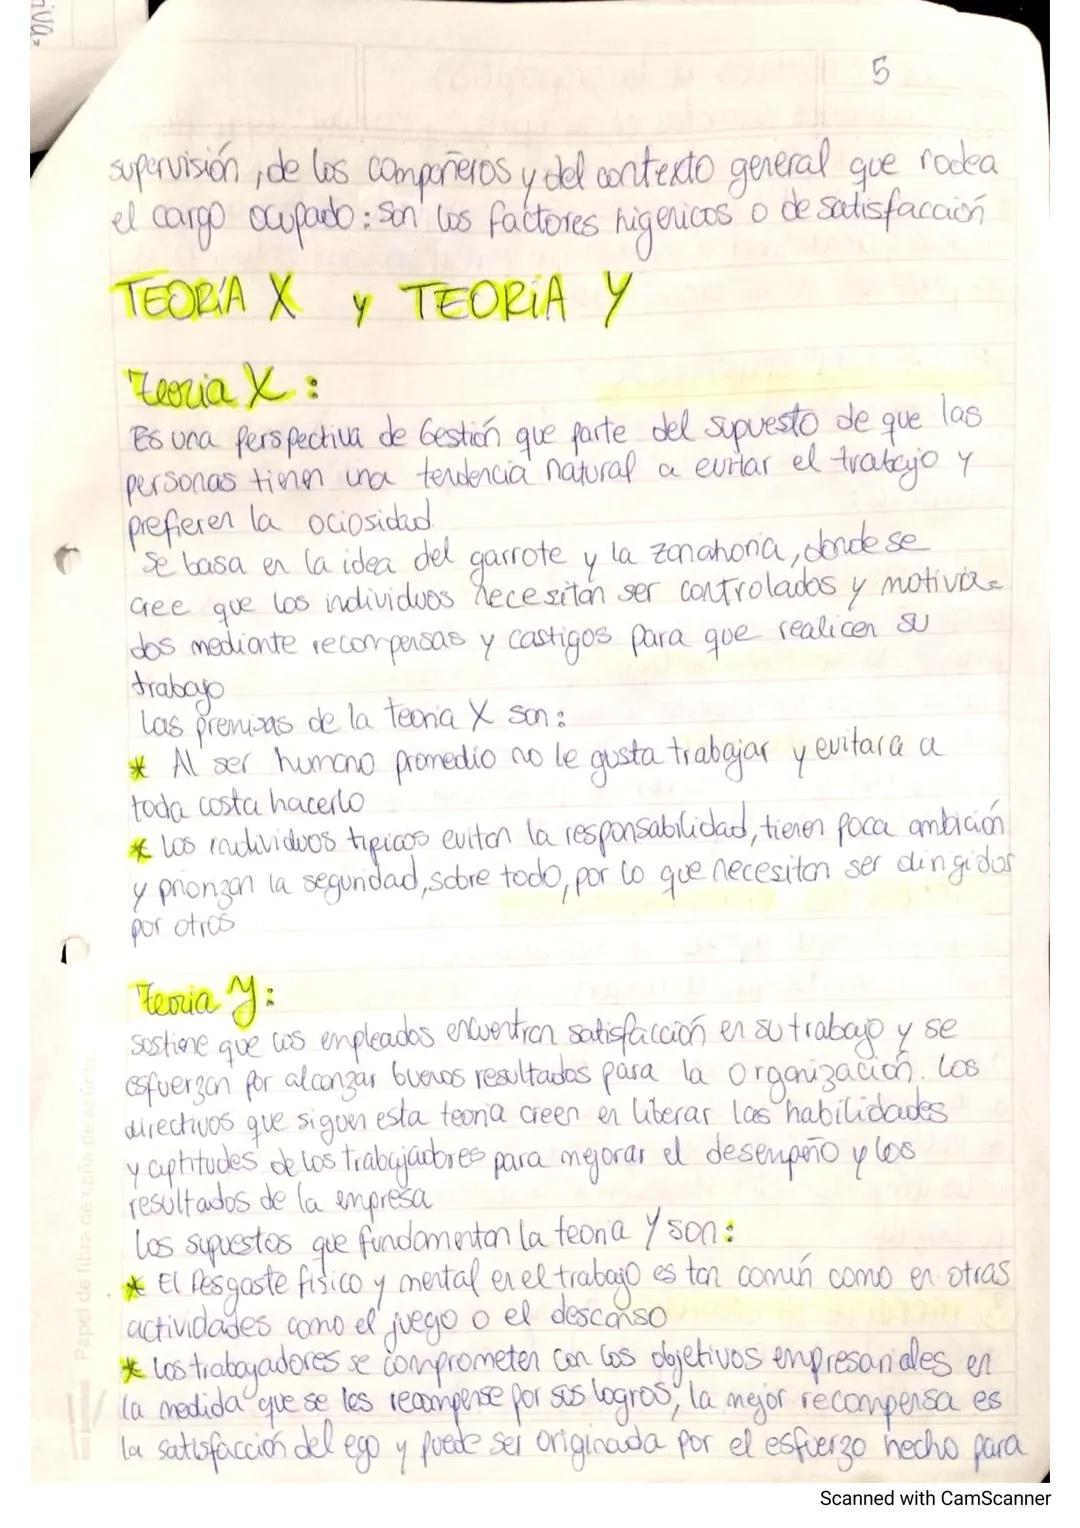 5
supervisión, de los compañeros y del contexto general que rodea
el cargo ocupado: son los factores higenicos o de satisfacción
TEORÍA X y TEORÍA Y
Teoria X:
Es una perspectiva de Gestión que parte del supuesto de que las
personas tienen una tendencia natural a evitar el trabajo y
prefieren la ociosidad.
Se basa en la idea del garrote y la zanahoria, donde se
cree que los individuos necesitan ser controlados y motiva=
dos mediante recompensas y castigos para que realicen su
trabajo
Las premisas de la teoria X son:
* Al ser humano promedio no le gusta trabajar y evitara a
toda costa hacerlo
* Los individuos tipicos evitan la responsabilidad, tienen poca ambición
y priorizan la seguridad, sobre todo, por lo que necesitan ser dirigidos
por otros
Teoria Y:
Sostiene que los empleados encuentran satisfacción en su trabajo y se
esfuerzan por alcanzar buenos resultados para la organización. Los
directivos que siguen esta teoria creen en liberar las habilidades
y aptitudes de los trabajadores para mejorar el desempeño y los
resultados de la empresa
Los supuestos que fundamentan la teoria Y son:
* El Desgaste fisico y mental en el trabajo es tan común como en otras
actividades como el juego o el descanso
* Los trabayadores se comprometen con los objetivos empresariales en
la medida que se les recompense por sus logros, la mejor recompensa es
la satisfacción del ego y puede ser originada por el esfuerzo hecho para
Papel de fibra de caña de azúcar.
Scanned with CamScanner